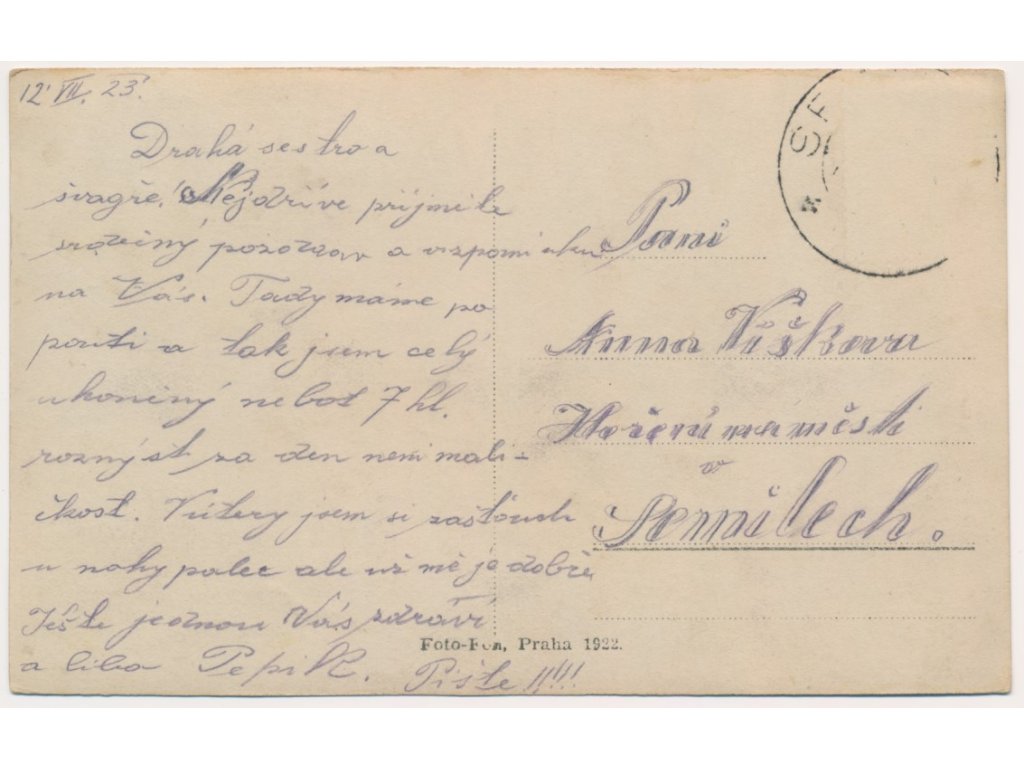 12. VII. 23.
Drahá sestro a
švagře! Nejdříve prijměte
srdečný pozdrav a vzpomínku
na Vás. Tady máme po
pouti a tak jsem celý
uhoněný neboť 7 hl.
roznýst za den není mali-
čkost. V útery jsem si
u nohy palec ale už mě je dobře
Ještě jednou Vás zdraví
a líbá Pepik. Pište !!!!
Paní
Anna Víšková
Hoření náměstí
v
Semilech.
Foto-Fon, Praha 1922.